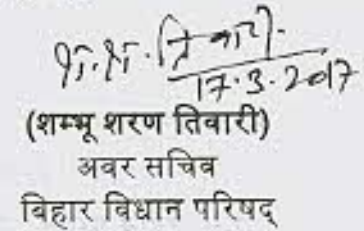 श.श. तिवारी.
17.3.2017
(शम्भू शरण तिवारी)
अवर सचिव
बिहार विधान परिषद्